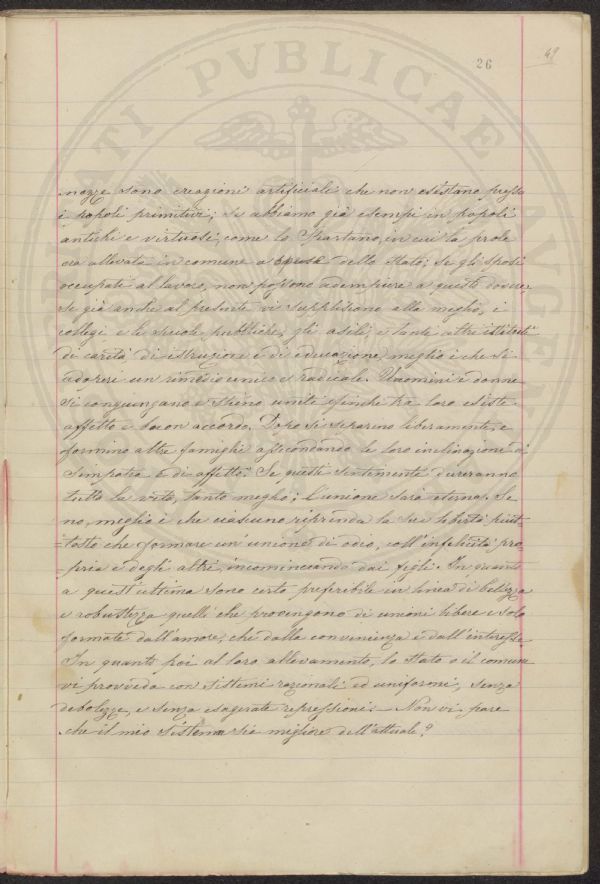 PVBLICAE
26
49
nozze sono creazioni artificiali che non esistono presso
i popoli primitivi; se abbiamo già esempi in popoli
antichi e virtuosi, come lo Spartano, in cui la prole
era allevata in comune a spese dello Stato; se gli sposi
occupati al lavoro, non possono adempiere a questi doveri,
se già anche al presente vi suppliscono alla meglio, i
collegi e le scuole pubbliche, gli asili, e tanti altri istituti
di carità di istruzione e di educazione, meglio è che si
adoperi un rimedio unico e radicale. Uomini e donne
si congiungano e stieno uniti finché tra loro esiste
affetto e buon accordo. Dopo si separino liberamente, e
formino altre famiglie assecondando le loro inclinazione di
simpatia e di affetto. Se questi sentimenti dureranno
tutta la vita, tanto meglio; l'unione sarà eterna. Se
no, meglio è che ciascuno riprenda la sua libertà piut-
=tosto che formare un'unione di odio, coll'infelicità pro-
=pria e degli altri, incominciando dai figli. In quanto
a quest'ultima sono certo preferibile in linea di bellezza
e robustezza quelli che provengono di unioni libere e solo
formate dall'amore, che dalla convenienza e dall'interesse.
In quanto poi al loro allevamento, lo Stato o il comune
vi provveda con sistemi razionali ed uniformi, senza
debolezze, e senza esagerate repressioni. - Non vi pare
che il mio sistema sia migliore dell'attuale?